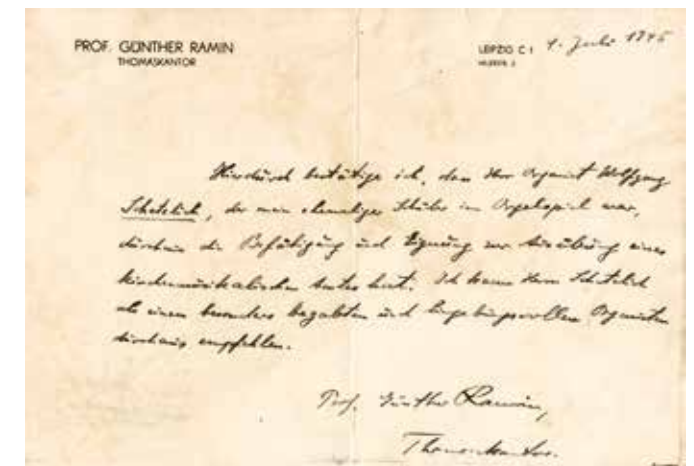 PROF. GÜNTHER RAMIN
THOMASKANTOR
LEIPZIG C 1 1. Juli 1945
Hierdurch bestätige ich, dass Herr Organist Wolfgang
Schetelich, der mein ehemaliger Schüler im Orgelspiel war,
durchaus die Befähigung und Eignung zur Ausübung eines
kirchenmusikalischen Amtes hat. Ich kann Herrn Schetelich
als einen besonders begabten und hingebungsvollen Organisten
durchaus empfehlen.
Prof. Günther Ramin,
Thomaskantor.